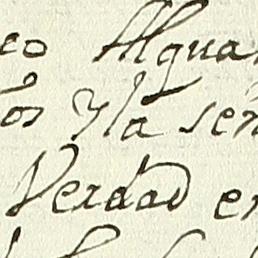 eo Algua
os y la señ
Verdad en